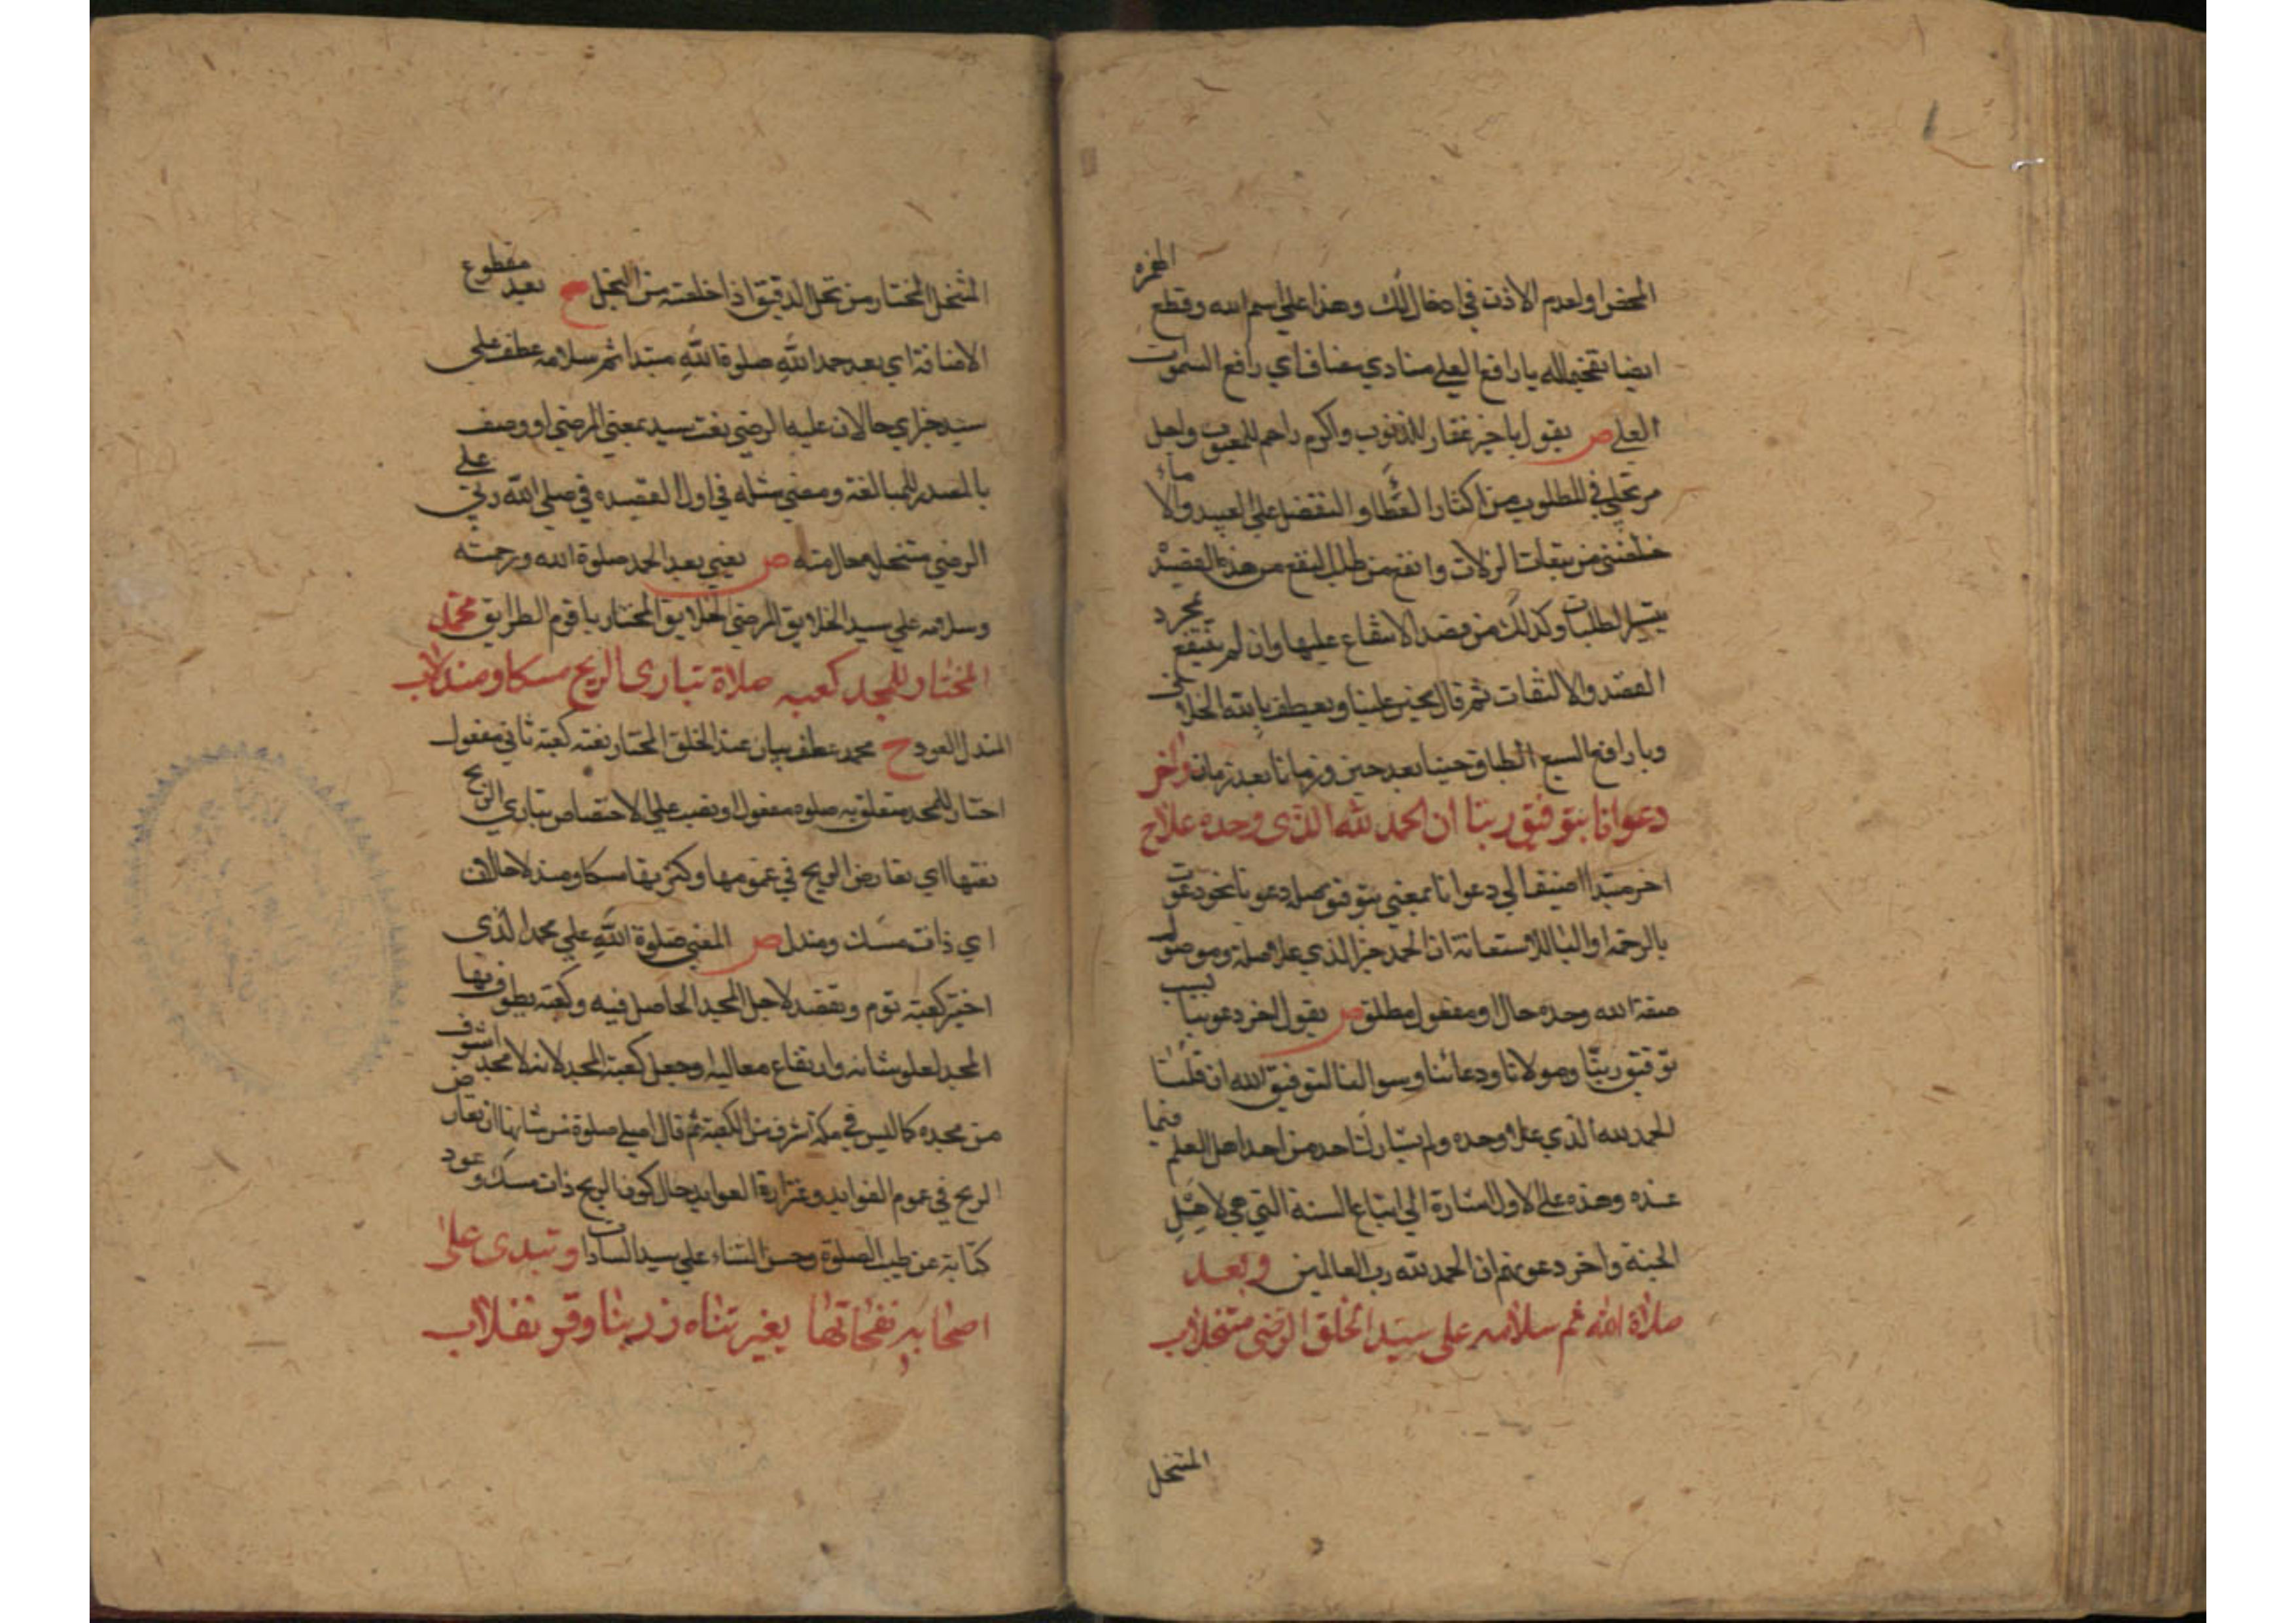 المحض او لعدم الاذن في ادخال لك وهذا على اسم الله وقطع الهمزة
ايضا تفخيما لله يا رافع العلي منادي مضاف اي رافع السموات
العلي ص يقول يا خير غفار للذنوب واكرم راحم للعيوب واجل
مرتجي في المطلوب من اكثار العطاء والتفضل علي العبيد والاماء
خلصني من تبعات الزلات وانفع من طلب النفع من هذه القصيد
بتيسر الطلبات وكذلك من قصد الانتفاع عليها وان لم ينتفع بمجرد
القصد والالتفات ثم قال بحنين علينا وبعطف يا الله الخلاق
ويا رافع السبع الطباق حينا بعد حين وزمانا بعد زمان واخر
دعوانا بتوفيق ربنا ان الحمد لله الذى وحده علا ح
اخر مبتدا اضيف الي دعوانا بمعني بتوفيق صله دعوانا نحو دعوت
بالرحمة او البا للاستعانة ان الحمد خبر الذي علا صلة وموصول
صفة الله وحده حال او مفعول مطلق ص يقول اخر دعوينا بسبب
توفيق ربنا ومولانا ودعائنا وسوالنا لتوفيق الله ان قلنا
الحمد لله الذي علا وحده ولم يشارك احد من احد اهل العلم فيما
عنده وهذه علي الاول اشارة الي اتباع السنة التي هي لاهل
الجنة واخر دعويهم ان الحمد لله رب العالمين وبعد
صلاة الله ثم سلامه على سيد الخلق الرضى متنخلا ب
المتنخل
المتنخل المختار من نخل الدقيق اذا خلصته من النخل ح بعيد مقطوع
الاضافة اي بعد حمد الله صلوة الله مبتدا ثم سلامه عطف علي
سيد خبر اي حالان عليه الرضي نعت سيد بمعني المرضي او وصف
بالمصدر للمبالغة ومعني مثله في اول القصيده في صلي الله ربي علي
الرضي متنخلا حال منه ص يعني بعد الحمد صلوة الله ورحمته
وسلامه علي سيد الخلايق المرضي الخلايق المختار باقوم الطرايق محمد
المختار للمجد كعبه صلاة تبارى الريح مسكا ومندلا ب
المندل العود ح محمد عطف بيان عند الخلق المختار نعته كعبة ثاني مفعول
اختار للمجد متعلق به صلوة مفعول او نصب علي الاختصاص تباري الريح
نعتها اي تعارض الريح في عمومها وكثرتها مسكا ومندلا حالان
اي ذات مسك ومندل ص المعني صلوة الله علي محمد الذى
اختير كعبة توم وتقصد لاجل المجد الحاصل فيه وكعبة يطوف بها
المجد لعلو شانه وارتفاع معاليه وجعل كعبة المجد لانه لا مجد اشرف
من مجده كما ليس في مكة اشرف من الكعبة ثم قال اصلي صلوة من شانها ان تعارض
الريح في عموم الفوايد وغزارة العوايد حال كون الريح ذات مسك وعود
كناية عن طيب الصلوة وحسن الثناء علي سيد السادات وتبدى على
اصحابه نفحاتها بغير تناه زربنا وقرنفلا ب